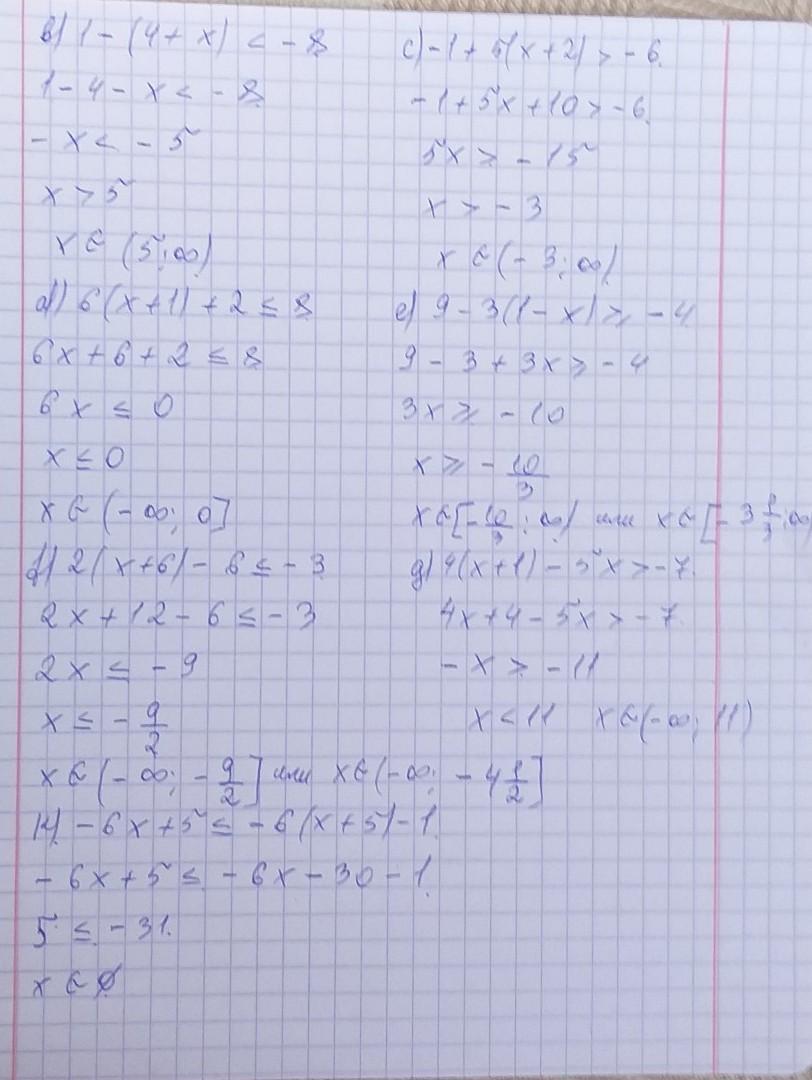 b) 1 - (4 + x) < - 8
1 - 4 - x < - 8
- x < - 5
x > 5
x ∈ (5; ∞)
c) -1 + 5(x + 2) > - 6
-1 + 5x + 10 > - 6
5x > - 15
x > - 3
x ∈ (- 3; ∞)
d) 6(x+1) + 2 ≤ 8
6x + 6 + 2 ≤ 8
6x ≤ 0
x ≤ 0
x ∈ (- ∞; 0]
e) 9 - 3(1 - x) ≥ - 4
9 - 3 + 3x ≥ - 4
3x ≥ - 10
x ≥ - 10/3
x ∈ [- 10/3; ∞) или x ∈ [- 3 1/3; ∞)
f) 2(x+6) - 6 ≤ - 3
2x + 12 - 6 ≤ - 3
2x ≤ - 9
x ≤ - 9/2
x ∈ (- ∞; - 9/2] или x ∈ (-∞; - 4 1/2]
g) 4(x+1) - 5x > - 7
4x + 4 - 5x > - 7
- x > - 11
x < 11 x ∈ (-∞; 11)
h) - 6x + 5 ≤ - 6(x + 5) - 1
- 6x + 5 ≤ - 6x - 30 - 1
5 ≤ - 31
x ∈ ∅